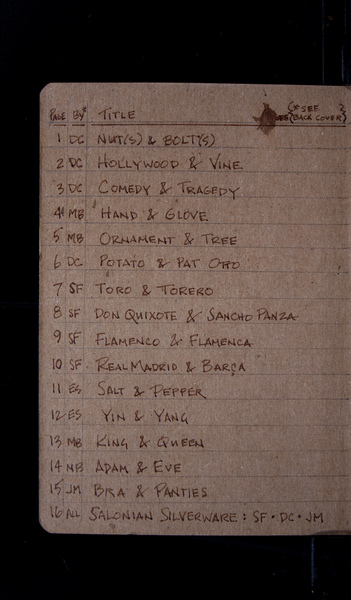 PAGE BY* TITLE {* SEE BACK COVER}
1 DC NUT(S) & BOLT(S)
2 DC HOLLYWOOD & VINE
3 DC COMEDY & TRAGEDY
4 MB HAND & GLOVE
5 MB ORNAMENT & TREE
6 DC POTATO & PAT OTTO
7 SF TORO & TORERO
8 SF DON QUIXOTE & SANCHO PANZA
9 SF FLAMENCO & FLAMENCA
10 SF REAL MADRID & BARÇA
11 ES SALT & PEPPER
12 ES YIN & YANG
13 MB KING & QUEEN
14 MB ADAM & EVE
15 JM BRA & PANTIES
16 ALL SALONIAN SILVERWARE : SF · DC · JM